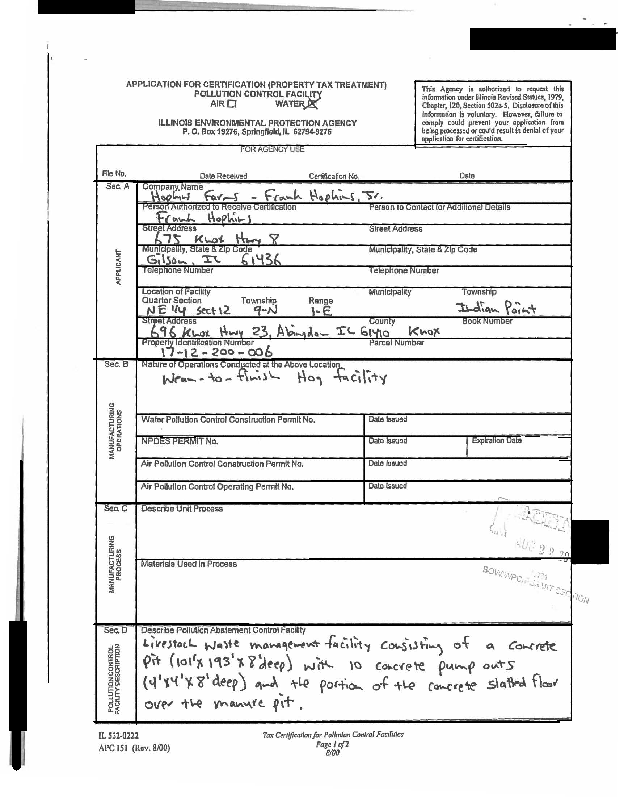 APPLICATION FOR CERTIFICATION (PROPERTY TAX TREATMENT)
POLLUTION CONTROL FACILITY
AIR WATER
ILLINOIS ENVIRONMENTAL PROTECTION AGENCY
P. O. Box 19276, Springfield, IL 62794-9276
This Agency is authorized to request this
information under Illinois Revised Statues, 1979,
Chapter, 120, Section 502a-5. Disclosure of this
information is voluntary. However, failure to
comply could prevent your application from
being processed or could result in denial of your
application for certification.
FOR AGENCY USE
File No. Date Received Certification No. Date
Sec. A Company Name
Hopkins Farms - Frank Hopkins, Jr.
Person Authorized to Receive Certification Person to Contact for Additional Details
Frank Hopkins
Street Address Street Address
675 Knox Hwy 8
Municipality, State & Zip Code Municipality, State & Zip Code
Gilson, IL 61436
Telephone Number Telephone Number
APPLICANT
Location of Facility Municipality Township
Quarter Section Township Range
NE 1/4 Sect 12 9-N 1-E Indian Point
Street Address County Book Number
696 Knox Hwy 23, Abingdon IL 61410 Knox
Property Identification Number Parcel Number
17-12-200-006
Sec. B Nature of Operations Conducted at the Above Location
Wean-to-finish Hog facility
MANUFACTURING
OPERATIONS
Water Pollution Control Construction Permit No. Date Issued
NPDES PERMIT No. Date Issued Expiration Date
Air Pollution Control Construction Permit No. Date Issued
Air Pollution Control Operating Permit No. Date Issued
Sec. C Describe Unit Process
MANUFACTURING
PROCESS
Materials Used in Process
Sec. D Describe Pollution Abatement Control Facility
POLLUTION CONTROL
FACILITY DESCRIPTION
Livestock waste management facility consisting of a concrete
pit (101' x 193' x 8' deep) with 10 concrete pump outs
(4' x 4' x 8' deep) and the portion of the concrete slatted floor
over the manure pit.
IL 532-0222 Tax Certification for Pollution Control Facilities
APC 151 (Rev. 8/00) Page 1 of 2
8/00